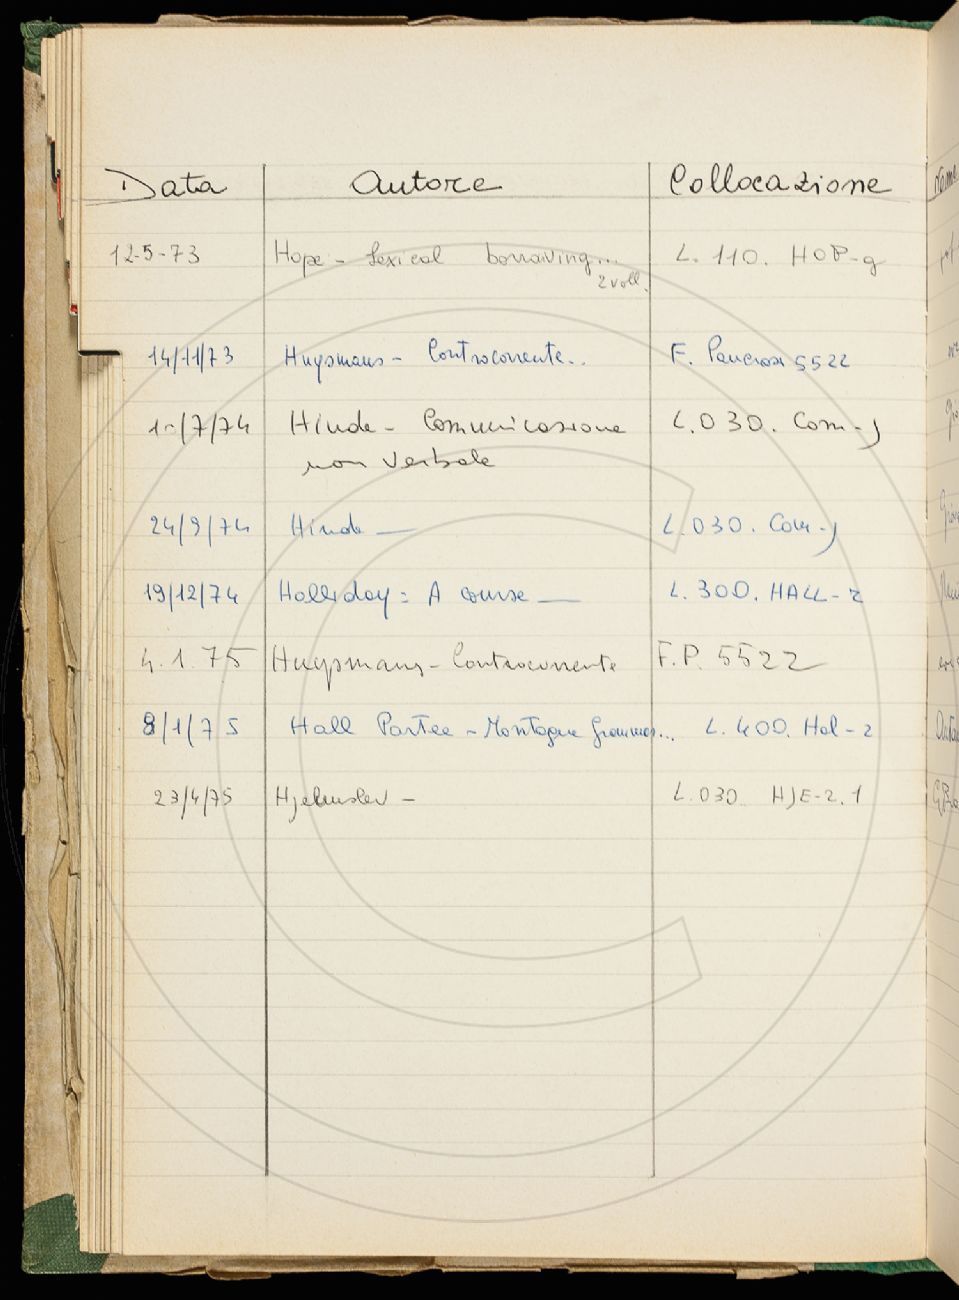 Data Autore Collocazione
12-5-73 Hope - Lexical borrowing... L. 110. HOP-g
2 voll.
14/11/73 Huysmans - Controcorrente.. F. Pancrazi 5522
1-/7/74 Hinde - Comunicazione L.030. Com-j
non verbale
24/9/74 Hinde — L.030. Com-j
19/12/74 Halliday: A course — L. 300. HALL-2
4.1.75 Huysmans - Controcorrente F.P. 5522
8/1/75 Hall Partee - Montague Grammar... L. 400. Hal-2
23/4/75 Hjelmslev - L.030. HJE-2.1